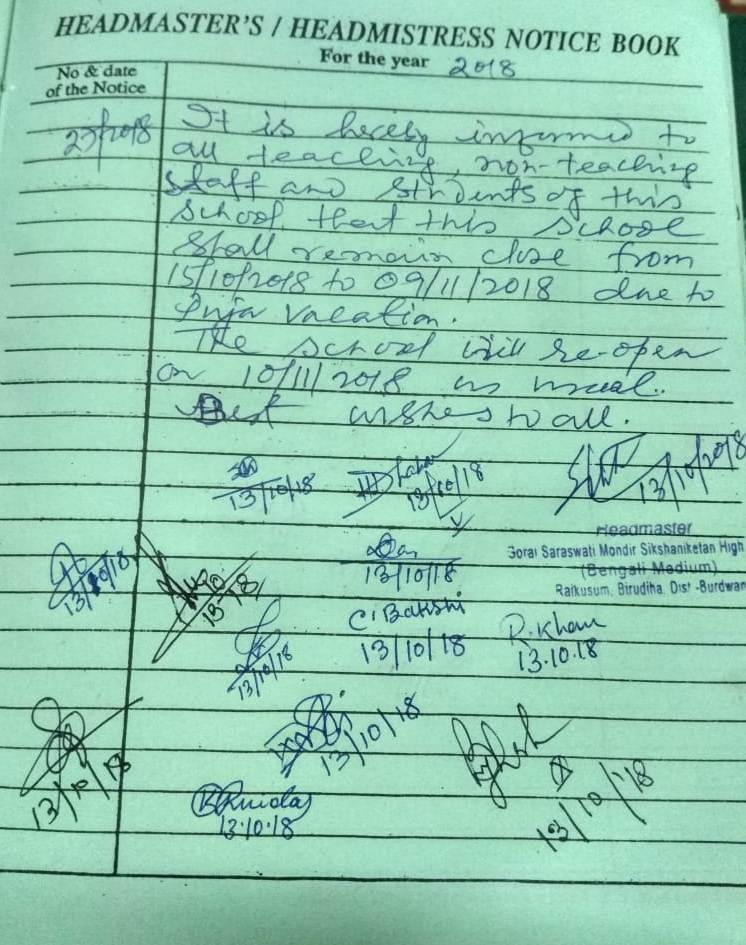 HEADMASTER'S / HEADMISTRESS NOTICE BOOK
For the year 2018
No & date
of the Notice
27/2018
It is hereby informed to
all teaching, non-teaching
staff and students of this
school that this school
shall remain close from
15/10/2018 to 09/11/2018 due to
Puja vacation.
The school will re-open
on 10/11/2018 as usual.
Best wishes to all.
13/10/18
13/10/18
13/10/2018
Headmaster
Gorai Saraswati Mondir Sikshaniketan High
(Bengali Medium)
Raikusum, Birudiha, Dist -Burdwan
13/10/18
13/10/18
13/10/18
C. Bakshi
13/10/18
R. Khan
13.10.18
13/10/18
13/10/18
13/10/18
13/10/18
13.10.18